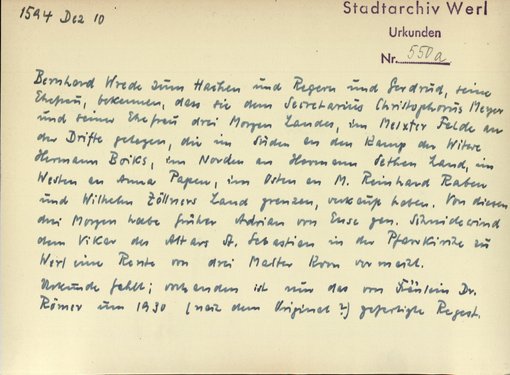 1594 Dez 10
Stadtarchiv Werl
Urkunden
Nr. 550a
Bernhard Wrede zum Hachen und Regern und Gerdrud, seine
Ehefrau, bekennen, dass sie dem Secretarius Christophorus Meyer
und seiner Ehefrau drei Morgen Landes, im Meister Felde an
der Drifte gelegen, die im Süden an den Kamp der Witwe
Hermann Boiks, im Norden an Hermann Land, im
Westen an Anna Papen, im Osten an M. Reinhard Raben
und Wilhelm Zöllners Land grenzen, verkauft haben. Von diesen
drei Morgen habe früher Adrian von Ense gen. Schneidewind
dem Vikar des Altars St. Sebastian in der Pfarrkirche zu
Werl eine Rente von drei Malter Korn vermacht.
Urkunde fehlt; vorhanden ist nur das von Fräulein Dr.
Römer um 1930 (nach dem Original?) gefertigte Regest.